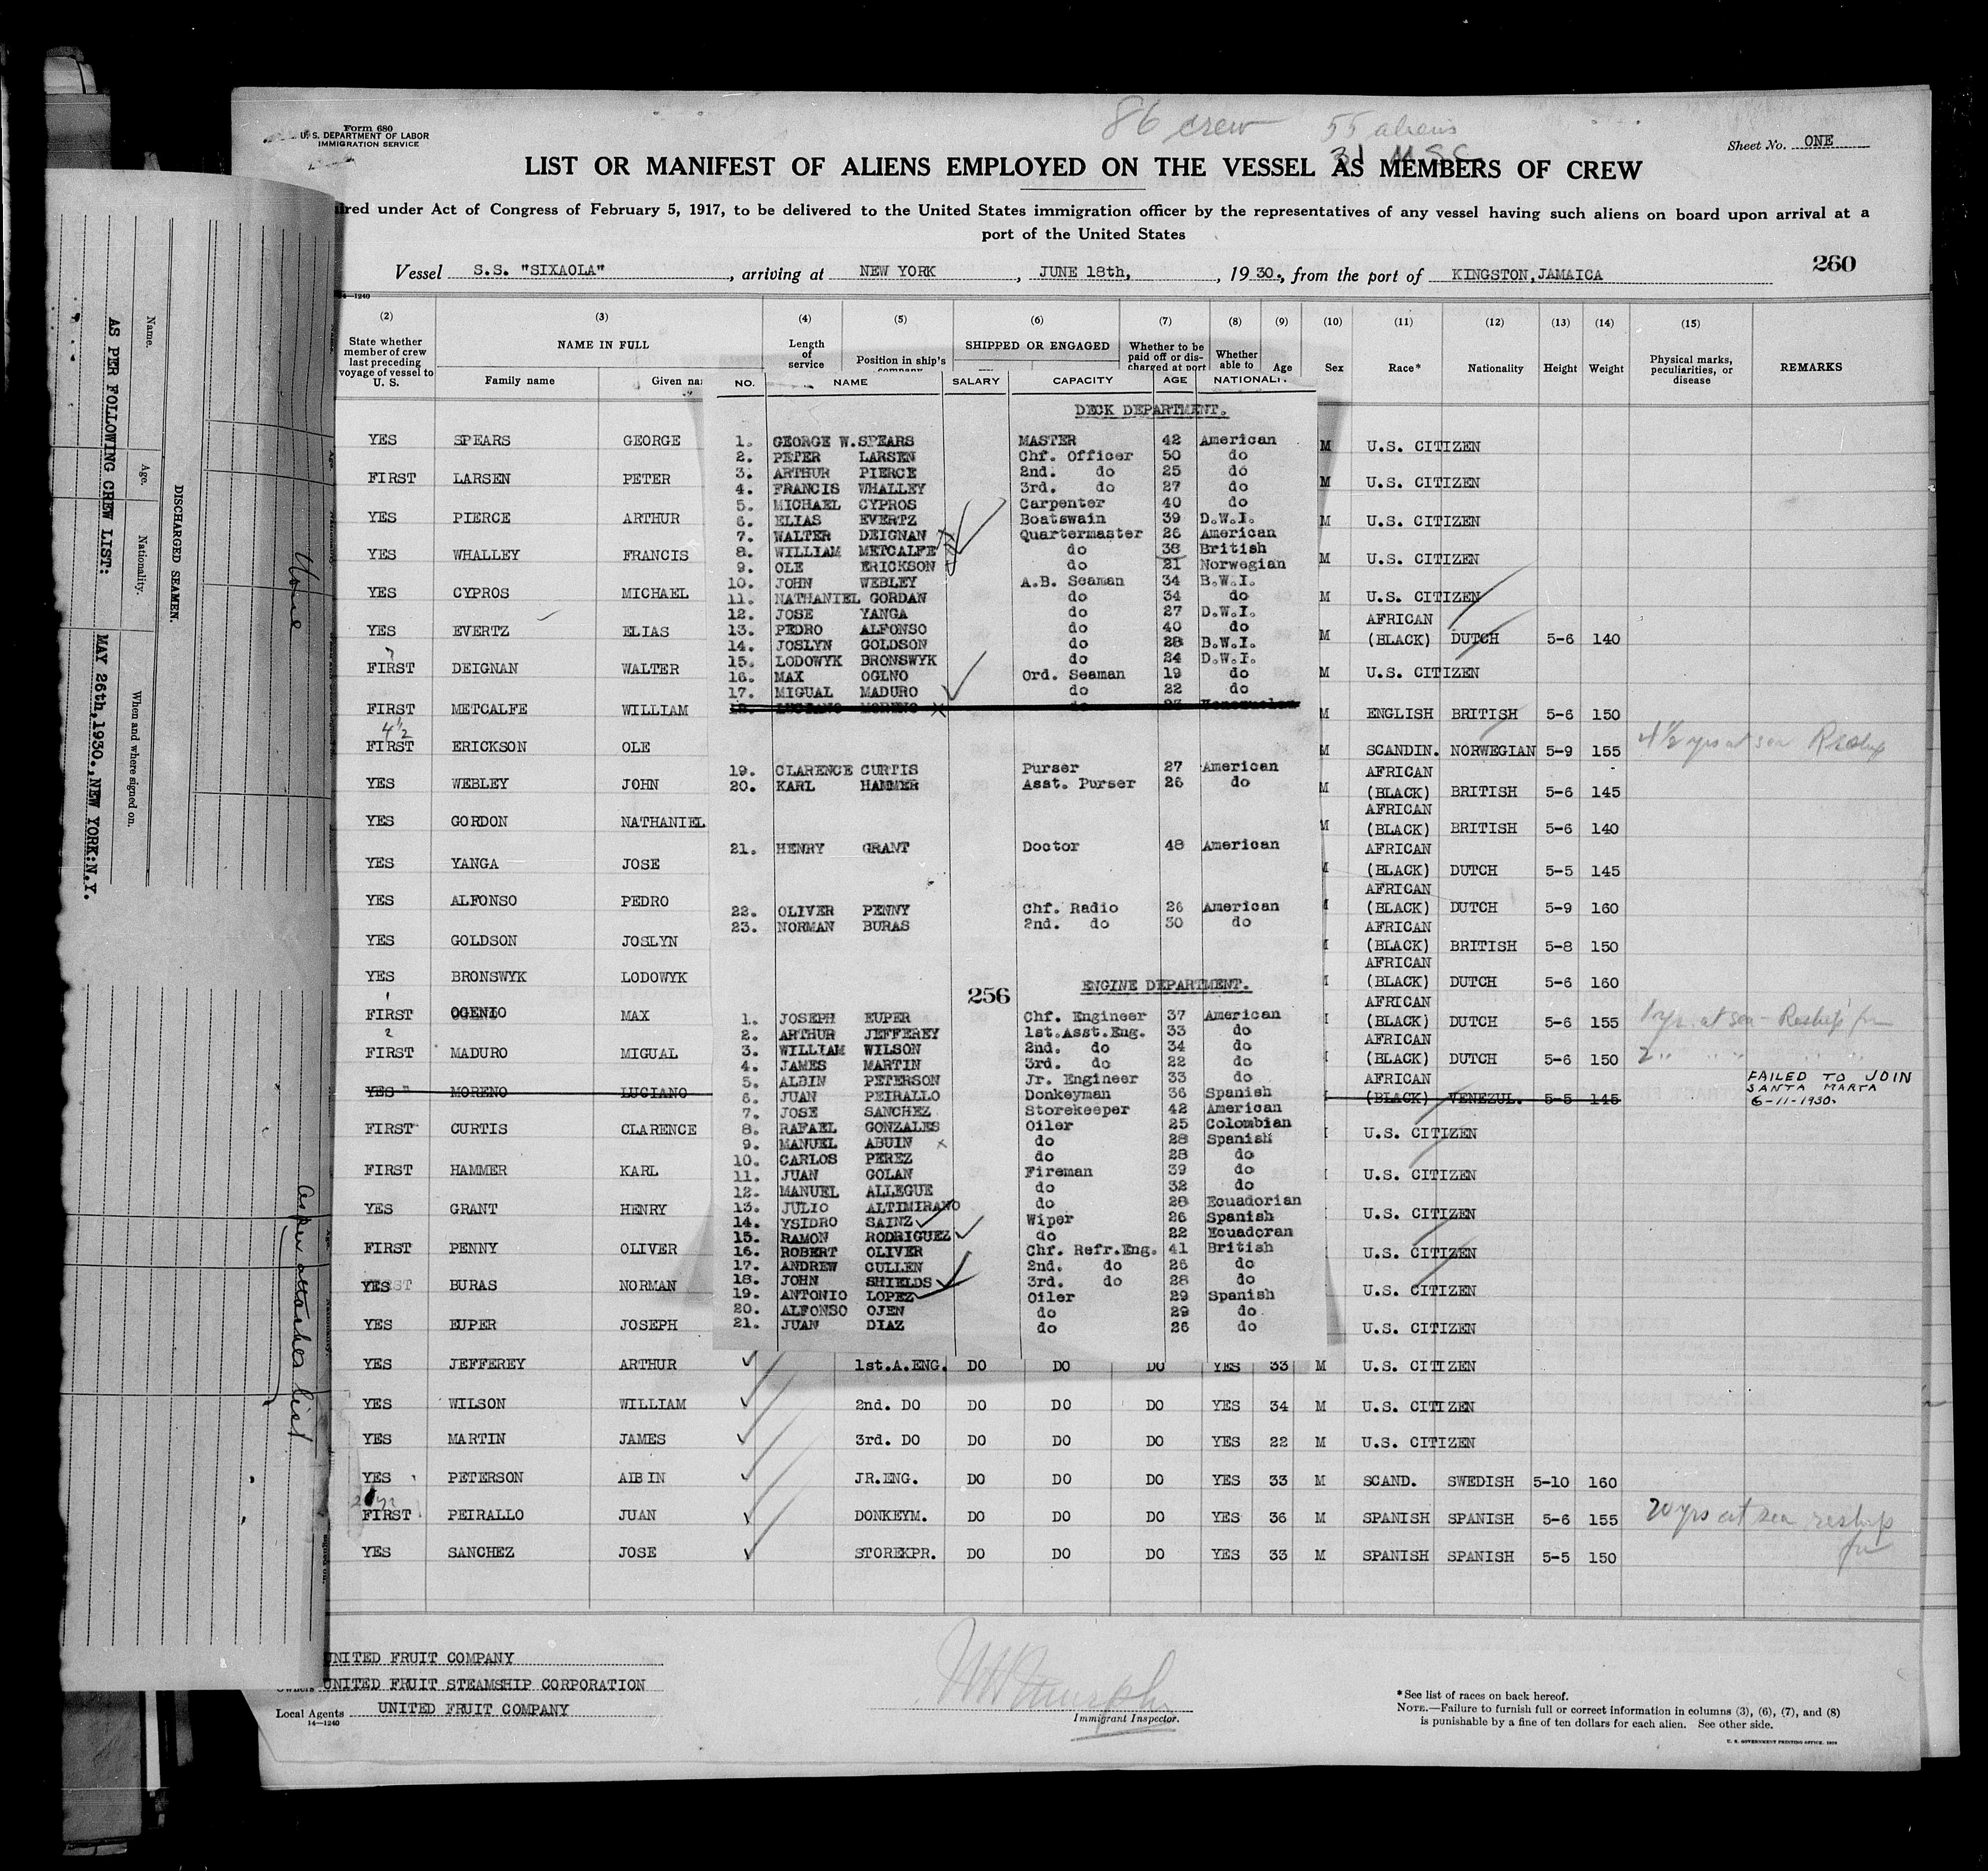 86 crew 55 aliens
31 U.S.C.
Form 680
U. S. DEPARTMENT OF LABOR
IMMIGRATION SERVICE
Sheet No. ONE
LIST OR MANIFEST OF ALIENS EMPLOYED ON THE VESSEL AS MEMBERS OF CREW
ired under Act of Congress of February 5, 1917, to be delivered to the United States immigration officer by the representatives of any vessel having such aliens on board upon arrival at a
port of the United States
Vessel S.S. "SIXAOLA", arriving at NEW YORK, JUNE 18th, 1930., from the port of KINGSTON, JAMAICA
260
14—1240
(2) (3) (4) (5) (6) (7) (8) (9) (10) (11) (12) (13) (14) (15)
State whether member of crew last preceding voyage of vessel to U. S.
NAME IN FULL
Family name
Given na
Length of service
Position in ship's company
SHIPPED OR ENGAGED
Whether to be paid off or discharged at port
Whether able to
Age
Sex
Race*
Nationality
Height
Weight
Physical marks, peculiarities, or disease
REMARKS
YES SPEARS GEORGE M U.S. CITIZEN
FIRST LARSEN PETER M U.S. CITIZEN
YES PIERCE ARTHUR M U.S. CITIZEN
YES WHALLEY FRANCIS M U.S. CITIZEN
YES CYPROS MICHAEL M U.S. CITIZEN
YES EVERTZ ELIAS M AFRICAN (BLACK) DUTCH 5-6 140
FIRST DEIGNAN WALTER M U.S. CITIZEN
FIRST METCALFE WILLIAM M ENGLISH BRITISH 5-6 150
4½
FIRST ERICKSON OLE M SCANDIN. NORWEGIAN 5-9 155 4½ yrs at sea Reship
YES WEBLEY JOHN M AFRICAN (BLACK) BRITISH 5-6 145
YES GORDON NATHANIEL M AFRICAN (BLACK) BRITISH 5-6 140
YES YANGA JOSE M AFRICAN (BLACK) DUTCH 5-5 145
YES ALFONSO PEDRO M AFRICAN (BLACK) DUTCH 5-9 160
YES GOLDSON JOSLYN M AFRICAN (BLACK) BRITISH 5-8 150
YES BRONSWYK LODOWYK M AFRICAN (BLACK) DUTCH 5-6 160
1
FIRST OGENIO MAX AFRICAN (BLACK) DUTCH 5-6 155 1 yr. at sea - Reship
2
FIRST MADURO MIGUAL AFRICAN (BLACK) DUTCH 5-6 150 2 " " " "
YES MORENO LUCIANO AFRICAN (BLACK) VENEZUL. 5-5 145 FAILED TO JOIN SANTA MARTA 6-11-1930.
FIRST CURTIS CLARENCE U.S. CITIZEN
FIRST HAMMER KARL U.S. CITIZEN
YES GRANT HENRY U.S. CITIZEN
FIRST PENNY OLIVER U.S. CITIZEN
YES BURAS NORMAN U.S. CITIZEN
YES EUPER JOSEPH U.S. CITIZEN
YES JEFFEREY ARTHUR 1st.A.ENG. DO DO DO YES 33 M U.S. CITIZEN
YES WILSON WILLIAM 2nd. DO DO DO DO YES 34 M U.S. CITIZEN
YES MARTIN JAMES 3rd. DO DO DO DO YES 22 M U.S. CITIZEN
YES PETERSON AIBIN JR.ENG. DO DO DO YES 33 M SCAND. SWEDISH 5-10 160
FIRST PEIRALLO JUAN DONKEYM. DO DO DO YES 36 M SPANISH SPANISH 5-6 155 20 yrs at sea reship
YES SANCHEZ JOSE STOREKPR. DO DO DO YES 33 M SPANISH SPANISH 5-5 150
NO. NAME SALARY CAPACITY AGE NATIONALI
DECK DEPARTMENT.
1. GEORGE W. SPEARS MASTER 42 American
2. PETER LARSEN Chf. Officer 50 do
3. ARTHUR PIERCE 2nd. do 25 do
4. FRANCIS WHALLEY 3rd. do 27 do
5. MICHAEL CYPROS Carpenter 40 do
6. ELIAS EVERTZ Boatswain 39 D.W.I.
7. WALTER DEIGNAN Quartermaster 26 American
8. WILLIAM METCALFE do 38 British
9. OLE ERICKSON do 21 Norwegian
10. JOHN WEBLEY A.B. Seaman 34 B.W.I.
11. NATHANIEL GORDAN do 34 do
12. JOSE YANGA do 27 D.W.I.
13. PEDRO ALFONSO do 40 do
14. JOSLYN GOLDSON do 28 B.W.I.
15. LODOWYK BRONSWYK do 24 D.W.I.
16. MAX OGLNO Ord. Seaman 19 do
17. MIGUAL MADURO do 22 do
18. LUCIANO MORENO do 27 Venezuelan
19. CLARENCE CURTIS Purser 27 American
20. KARL HAMMER Asst. Purser 26 do
21. HENRY GRANT Doctor 48 American
22. OLIVER PENNY Chf. Radio 26 American
23. NORMAN BURAS 2nd. do 30 do
256
ENGINE DEPARTMENT.
1. JOSEPH EUPER Chf. Engineer 37 American
2. ARTHUR JEFFEREY 1st.Asst.Eng. 33 do
3. WILLIAM WILSON 2nd. do 34 do
4. JAMES MARTIN 3rd. do 22 do
5. ALBIN PETERSON Jr. Engineer 33 do
6. JUAN PEIRALLO Donkeyman 36 Spanish
7. JOSE SANCHEZ Storekeeper 42 American
8. RAFAEL GONZALES Oiler 25 Colombian
9. MANUEL ABUIN do 28 Spanish
10. CARLOS PEREZ do 28 do
11. JUAN GOLAN Fireman 39 do
12. MANUEL ALLEGUE do 32 do
13. JULIO ALTIMIRANO do 28 Ecuadorian
14. YSIDRO SAINZ Wiper 26 Spanish
15. RAMON RODRIGUEZ do 22 Ecuadoran
16. ROBERT OLIVER Chf. Refr.Eng. 41 British
17. ANDREW CULLEN 2nd. do 26 do
18. JOHN SHIELDS 3rd. do 28 do
19. ANTONIO LOPEZ Oiler 29 Spanish
20. ALFONSO OJEN do 29 do
21. JUAN DIAZ do 26 do
UNITED FRUIT COMPANY
Owners UNITED FRUIT STEAMSHIP CORPORATION
Local Agents UNITED FRUIT COMPANY
14—1240
Immigrant Inspector.
*See list of races on back hereof.
NOTE.—Failure to furnish full or correct information in columns (3), (6), (7), and (8)
is punishable by a fine of ten dollars for each alien. See other side.
U. S. GOVERNMENT PRINTING OFFICE
DISCHARGED SEAMEN.
Name. Age. Nationality. When and where signed on.
AS PER FOLLOWING CREW LIST: MAY 26th, 1930., NEW YORK:N.Y.
None
as per attached list